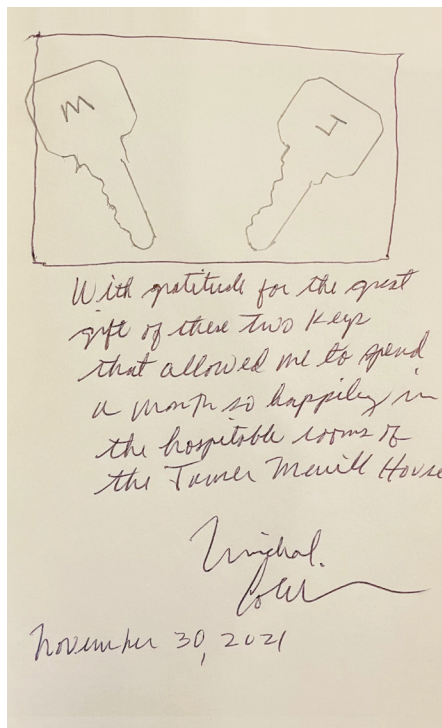 M
4
With gratitude for the great
gift of these two keys
that allowed me to spend
a month so happily in
the hospitable rooms of
the James Merrill House
November 30, 2021